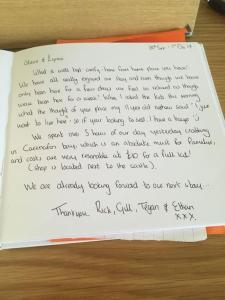 Steve & Lynne
What a well kept comfy home from home place you have!
We have all really enjoyed our stay and even though we have
only been here for a few days we feel so relaxed as though
weve been here for a week! When I asked the kids this morning
what they thought of your place my 11 year old said "I just
want to live here" so if your looking to sell I have a buyer :)
We spent over 5 hours of our day yesterday crabbing
in Caernarfon bay, which is an absolute must for families,
and costs are very reasonable at £10 for a full kit!
(shop is located next to the castle).
We are already looking forward to our next stay...
Thankyou Rick, Gill, Tegan & Ethan
xxx